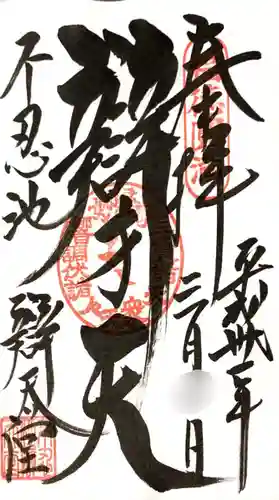 奉拝
平成卅一年
二月 日
辯才天
不忍池
辯天堂